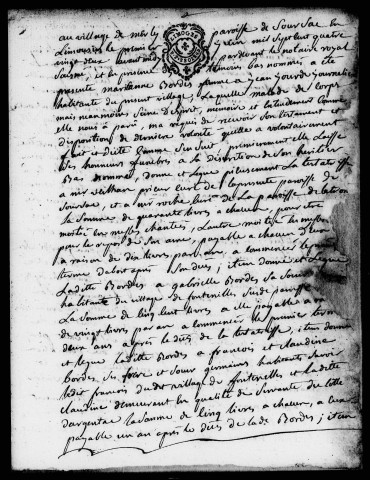 au village de paroisse de Soursac en
Limousin le premier juin mil sept cent quatre
vingt deux avant midy pardevant le notaire royal
LIMOGES
et la presence des temoins bas nommés, a été
presente marianne Bordes femme a jean journalier
habitante du present village, Laquelle malade de corps
mais neanmoins Seine d'esprit, memoire et entendement comme
elle nous a paru, ma requis de recevoir Son testament et
disposition de derniere volonté quelle a volontairement
fait et dicté Comme Sen Suit, premierement elle Laisse
Ses honneurs funebres a la discretion de Son heritier
Bas nommé, donne et Legue pieusement La testatrisse
a mr prieur curé de la presente paroisse de
Soursac, et a mr roche curé de La paroisse de
la Somme de quarante livres a chacun, pour etre
moitié en messes chantés, Lautre moitié en messes
pour le repos de Son ame, payable a chacun
a raison de dix livres par an, a commencer le premier
terme dabort apres Son deces; item donne et Legue
Ladite Bordes a gabrielle Bordes sa Soeur
habitante du village de fontenilles Susde paroisse
La Somme de Cinq cent livres a elle payable a
de vingt livres par an a commencer le premier terme
deux ans après le dècs de la testatrisse, item donne
et legue laditte Bordes a francois et claudine
bordes Ses frere et soeur germains habitants Savoir
ledit francois dudt village de fontenilles et Ladite
claudine demeurant en qualité de Servante de
dargentat La Somme de Cinq livres a chacun, a eux
payable un an après le dècs de lade Bordes; item